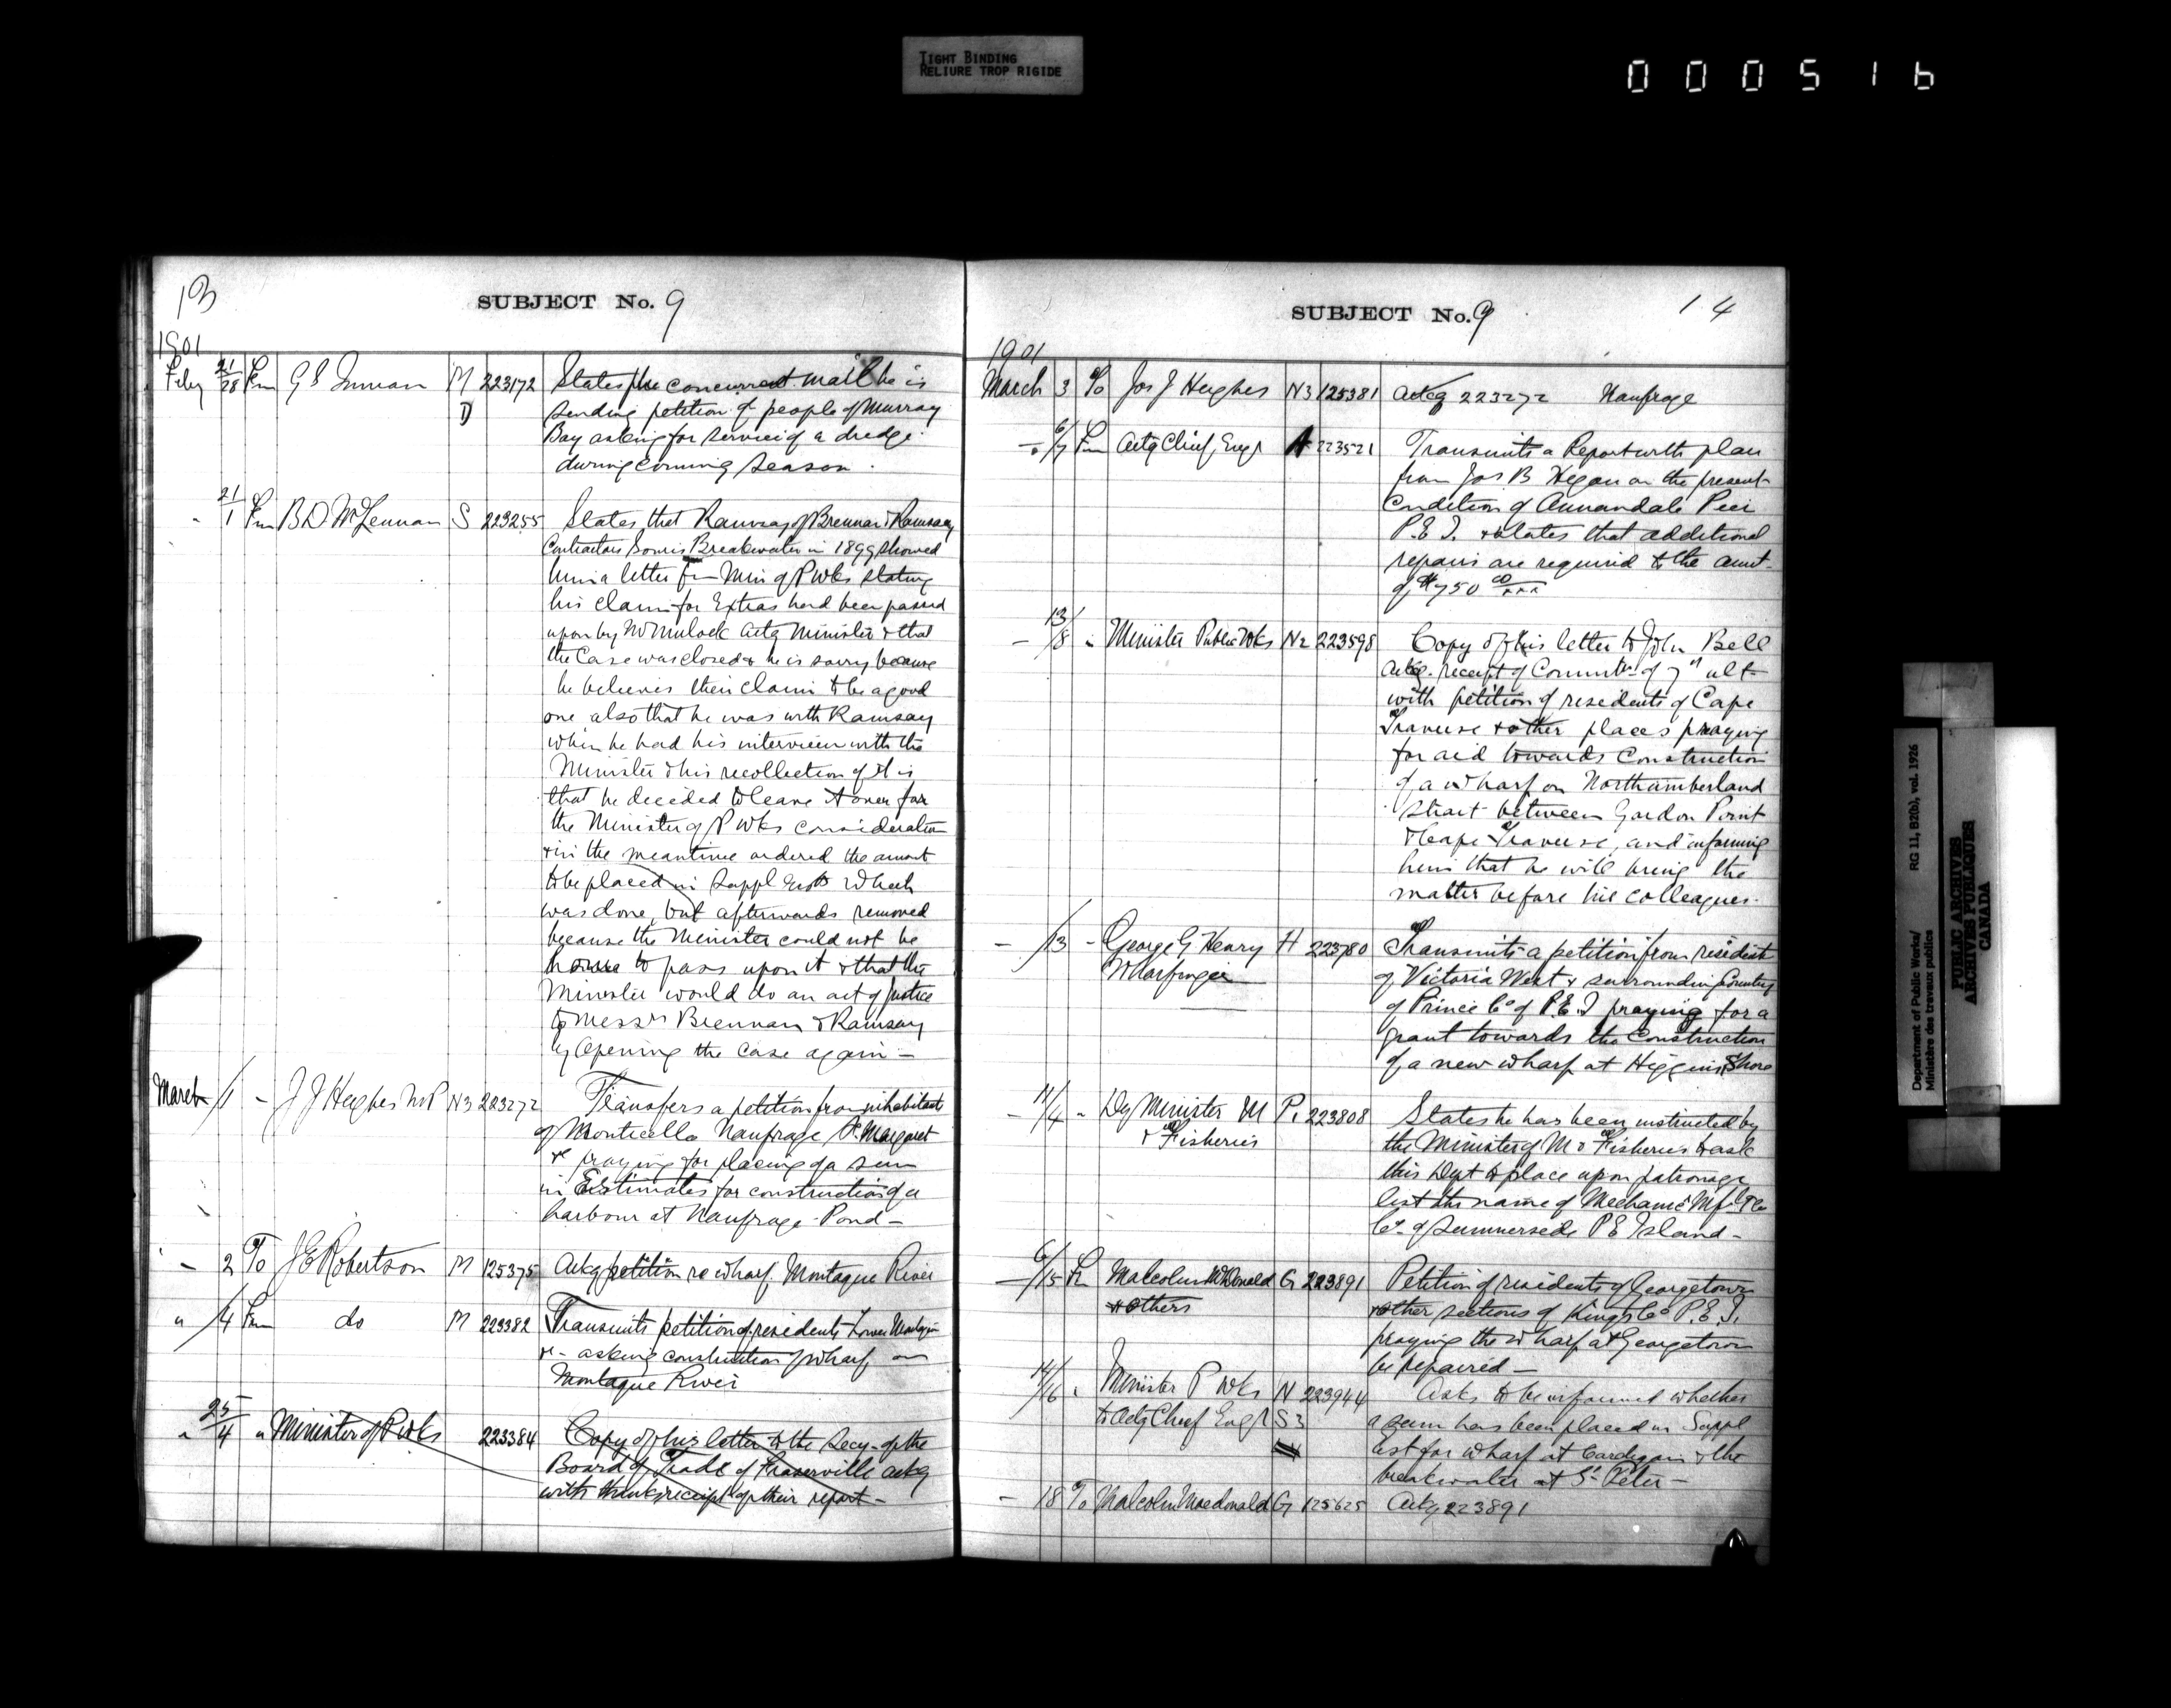 TIGHT BINDING
RELIURE TROP RIGIDE
000516
13
SUBJECT No. 9
1901
Feby 21/28 Fm G S Inman M 223172 States phe concurrent mail he is
D sending petition of people of Murray
Bay asking for service of a dredge
during coming season.
" 21/1 Fm B D McLennan S 223255 States that Ramsay of Brennan & Ramsay
Contractors Souris Breakwater in 1899 showed
him a letter fm Min of P Wks stating
his claim for Extras had been passed
upon by Mr Mulock Actg Minister & that
the Case was closed & he is sorry because
he believes their claim to be a good
one also that he was with Ramsay
when he had his interview with the
Minister & his recollection of it is
that he decided to leave it over for
the Minister of P Wks consideration
& in the meantime ordered the amount
to be placed in Suppl Ests which
was done, but afterwards removed
because the Minister could not be
home to pass upon it & that the
Minister would do an act of justice
to Messrs Brennan & Ramsay
by Opening the Case again —
March /1 - J J Hughes M P N3 223272 Transfers a petition from inhabitants
of Monticello Naufrage, St. Margaret
&c praying for placing of a sum
in Estimates for construction of a
harbour at Naufrage Pond —
- 2 To J E Robertson M 125375 Ackg petition re wharf. Montague River
" /4 Fm do M 223382 Transmits petition of residents Lower Montague
&c - asking construction of wharf on
Montague River
" 25/4 " Minister of P Wks 223384 Copy of his letter to the Secy - of the
Board of Trade of Fraserville ackg
with thanks receipt of their report —
SUBJECT No. 9
14
1901
March 3 To Jos J Hughes N3 125381 Ackg 223272 Naufrage
- 6/7 Fm Actg Chief Engr A 223521 Transmits a Report with plan
from Jos B Hegan on the present
Condition of Annandale Pier
P.E.I. & states that additional
repairs are required to the amt
of $750 00/xxx
- 13/8 " Minister Public Wks N2 223598 Copy of his letter to John Bell
ackg. receipt of Commn of 7th ult
with petition of residents of Cape
Traverse & other places praying
for aid towards Construction
of a wharf on Northumberland
Strait between Gordon Point
& Cape Traverse, and informing
him that he will bring the
matter before his colleagues.
- /13 - George G. Henry H 223780 Transmits a petition from residents
Wharfinger of Victoria West & surrounding Country
of Prince Co of P.E.I praying for a
grant towards the Construction
of a new wharf at Higgins Shore
- 11/4 " Dy Minister M P1 223808 States he has been instructed by
& Fisheries the Minister of M & Fisheries to ask
this Dept to place upon patronage
list the name of Mechanic Mfg
Co. of Summerside P E Island —
- 6/15 Fr Malcolm McDonald G 223891 Petition of residents of Georgetown
& others & other sections of Kings Co P.E.I.
praying the wharf at Georgetown
be repaired —
14/16 " Minister P Wks N 223944 Asks to be informed whether
to Actg Chief Engr S3 a sum has been placed in Suppl
Est for wharf at Cardigan & the
breakwater at St Peter —
- 18 To Malcolm Macdonald G 125625 Ackg 223891
Department of Public Works/ RG 11, B2(b), vol. 1926
Ministère des travaux publics
PUBLIC ARCHIVES
ARCHIVES PUBLIQUES
CANADA